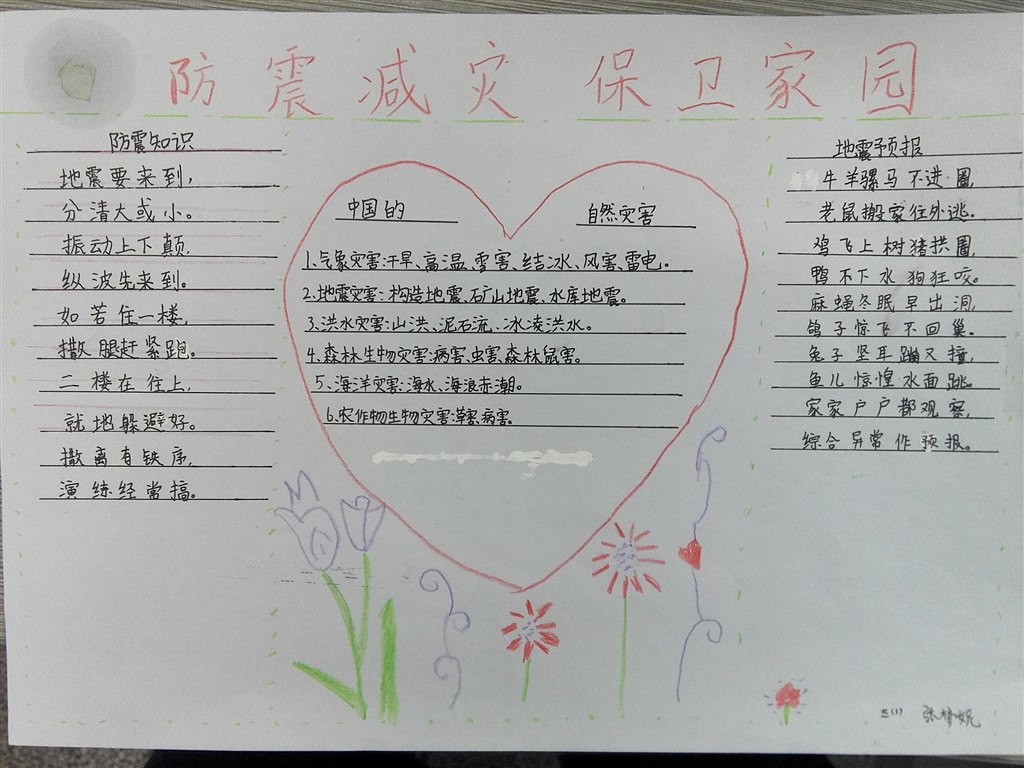 防震减灾 保卫家园
防震知识
地震要来到,
分清大或小。
振动上下颠,
纵波先来到。
如若住一楼,
撒腿赶紧跑。
二楼在往上,
就地躲避好。
撤离有铁序,
演练经常搞。
中国的 自然灾害
1、气象灾害:干旱、高温、雪害、结冰、风害、雷电。
2、地震灾害:构造地震、矿山地震、水库地震。
3、洪水灾害:山洪、泥石流、冰凌洪水。
4、森林生物灾害:病害、虫害、森林鼠害。
5、海洋灾害:海水、海浪赤潮。
6、农作物生物灾害:草害、病害。
地震预报
牛羊骡马不进圈,
老鼠搬家往外逃。
鸡飞上树猪拱圈,
鸭不下水狗狂咬。
麻蝇冬眠早出洞,
鸽子惊飞不回巢。
兔子坚耳蹦又撞,
鱼儿惊惶水面跳。
家家户户都观察,
综合异常作预报。
三(1) 张梦妮